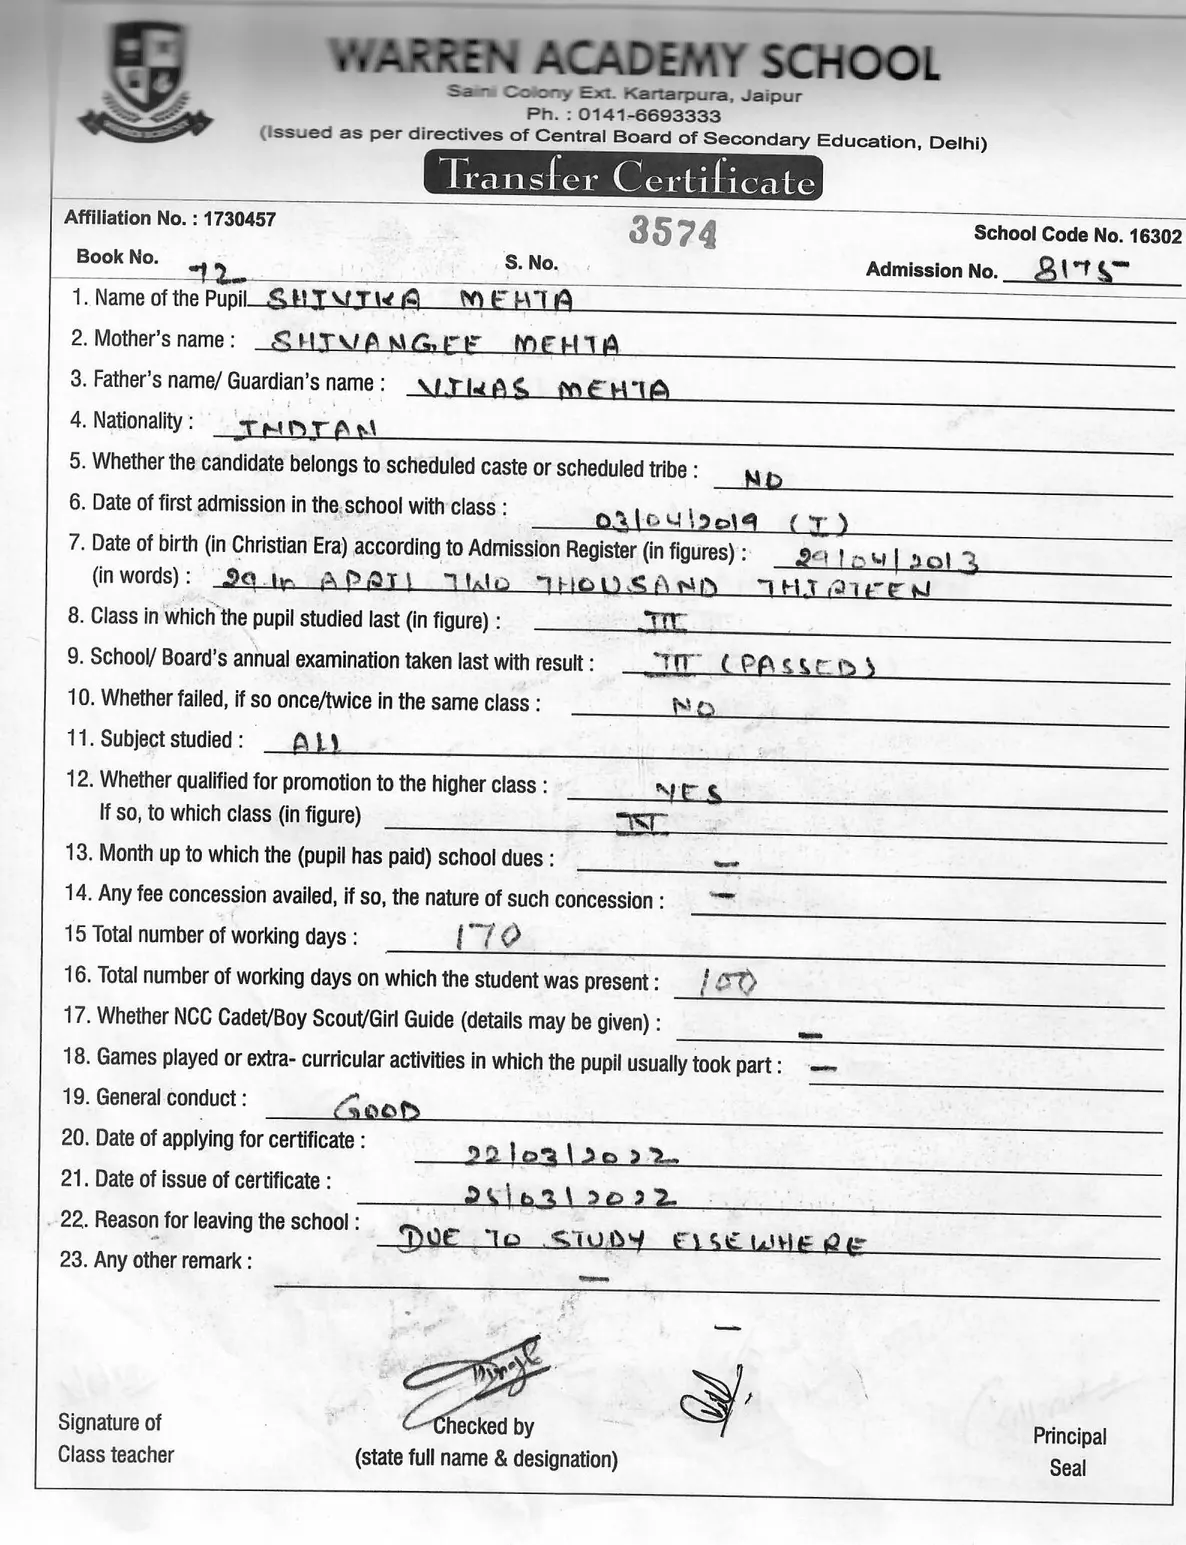 WARREN ACADEMY SCHOOL
Saini Colony Ext. Kartarpura, Jaipur
Ph. : 0141-6693333
(Issued as per directives of Central Board of Secondary Education, Delhi)
Transfer Certificate
Affiliation No. : 1730457 3574 School Code No. 16302
Book No. 72 S. No. Admission No. 8175
1. Name of the Pupil SHIVIKA MEHTA
2. Mother's name : SHIVANGEE MEHTA
3. Father's name/ Guardian's name : VIKAS MEHTA
4. Nationality : INDIAN
5. Whether the candidate belongs to scheduled caste or scheduled tribe : NO
6. Date of first admission in the school with class : 03/04/2019 (I)
7. Date of birth (in Christian Era) according to Admission Register (in figures) : 29/04/2013
(in words) : 29th APRIL TWO THOUSAND THIRTEEN
8. Class in which the pupil studied last (in figure) : III
9. School/ Board's annual examination taken last with result : III (PASSED)
10. Whether failed, if so once/twice in the same class : NO
11. Subject studied : ALL
12. Whether qualified for promotion to the higher class : YES
If so, to which class (in figure) IV
13. Month up to which the (pupil has paid) school dues : —
14. Any fee concession availed, if so, the nature of such concession : —
15 Total number of working days : 170
16. Total number of working days on which the student was present : 100
17. Whether NCC Cadet/Boy Scout/Girl Guide (details may be given) : —
18. Games played or extra- curricular activities in which the pupil usually took part : —
19. General conduct : GOOD
20. Date of applying for certificate : 22/03/2022
21. Date of issue of certificate : 25/03/2022
22. Reason for leaving the school : DUE TO STUDY ELSEWHERE
23. Any other remark : —
—
Signature of Checked by Principal
Class teacher (state full name & designation) Seal